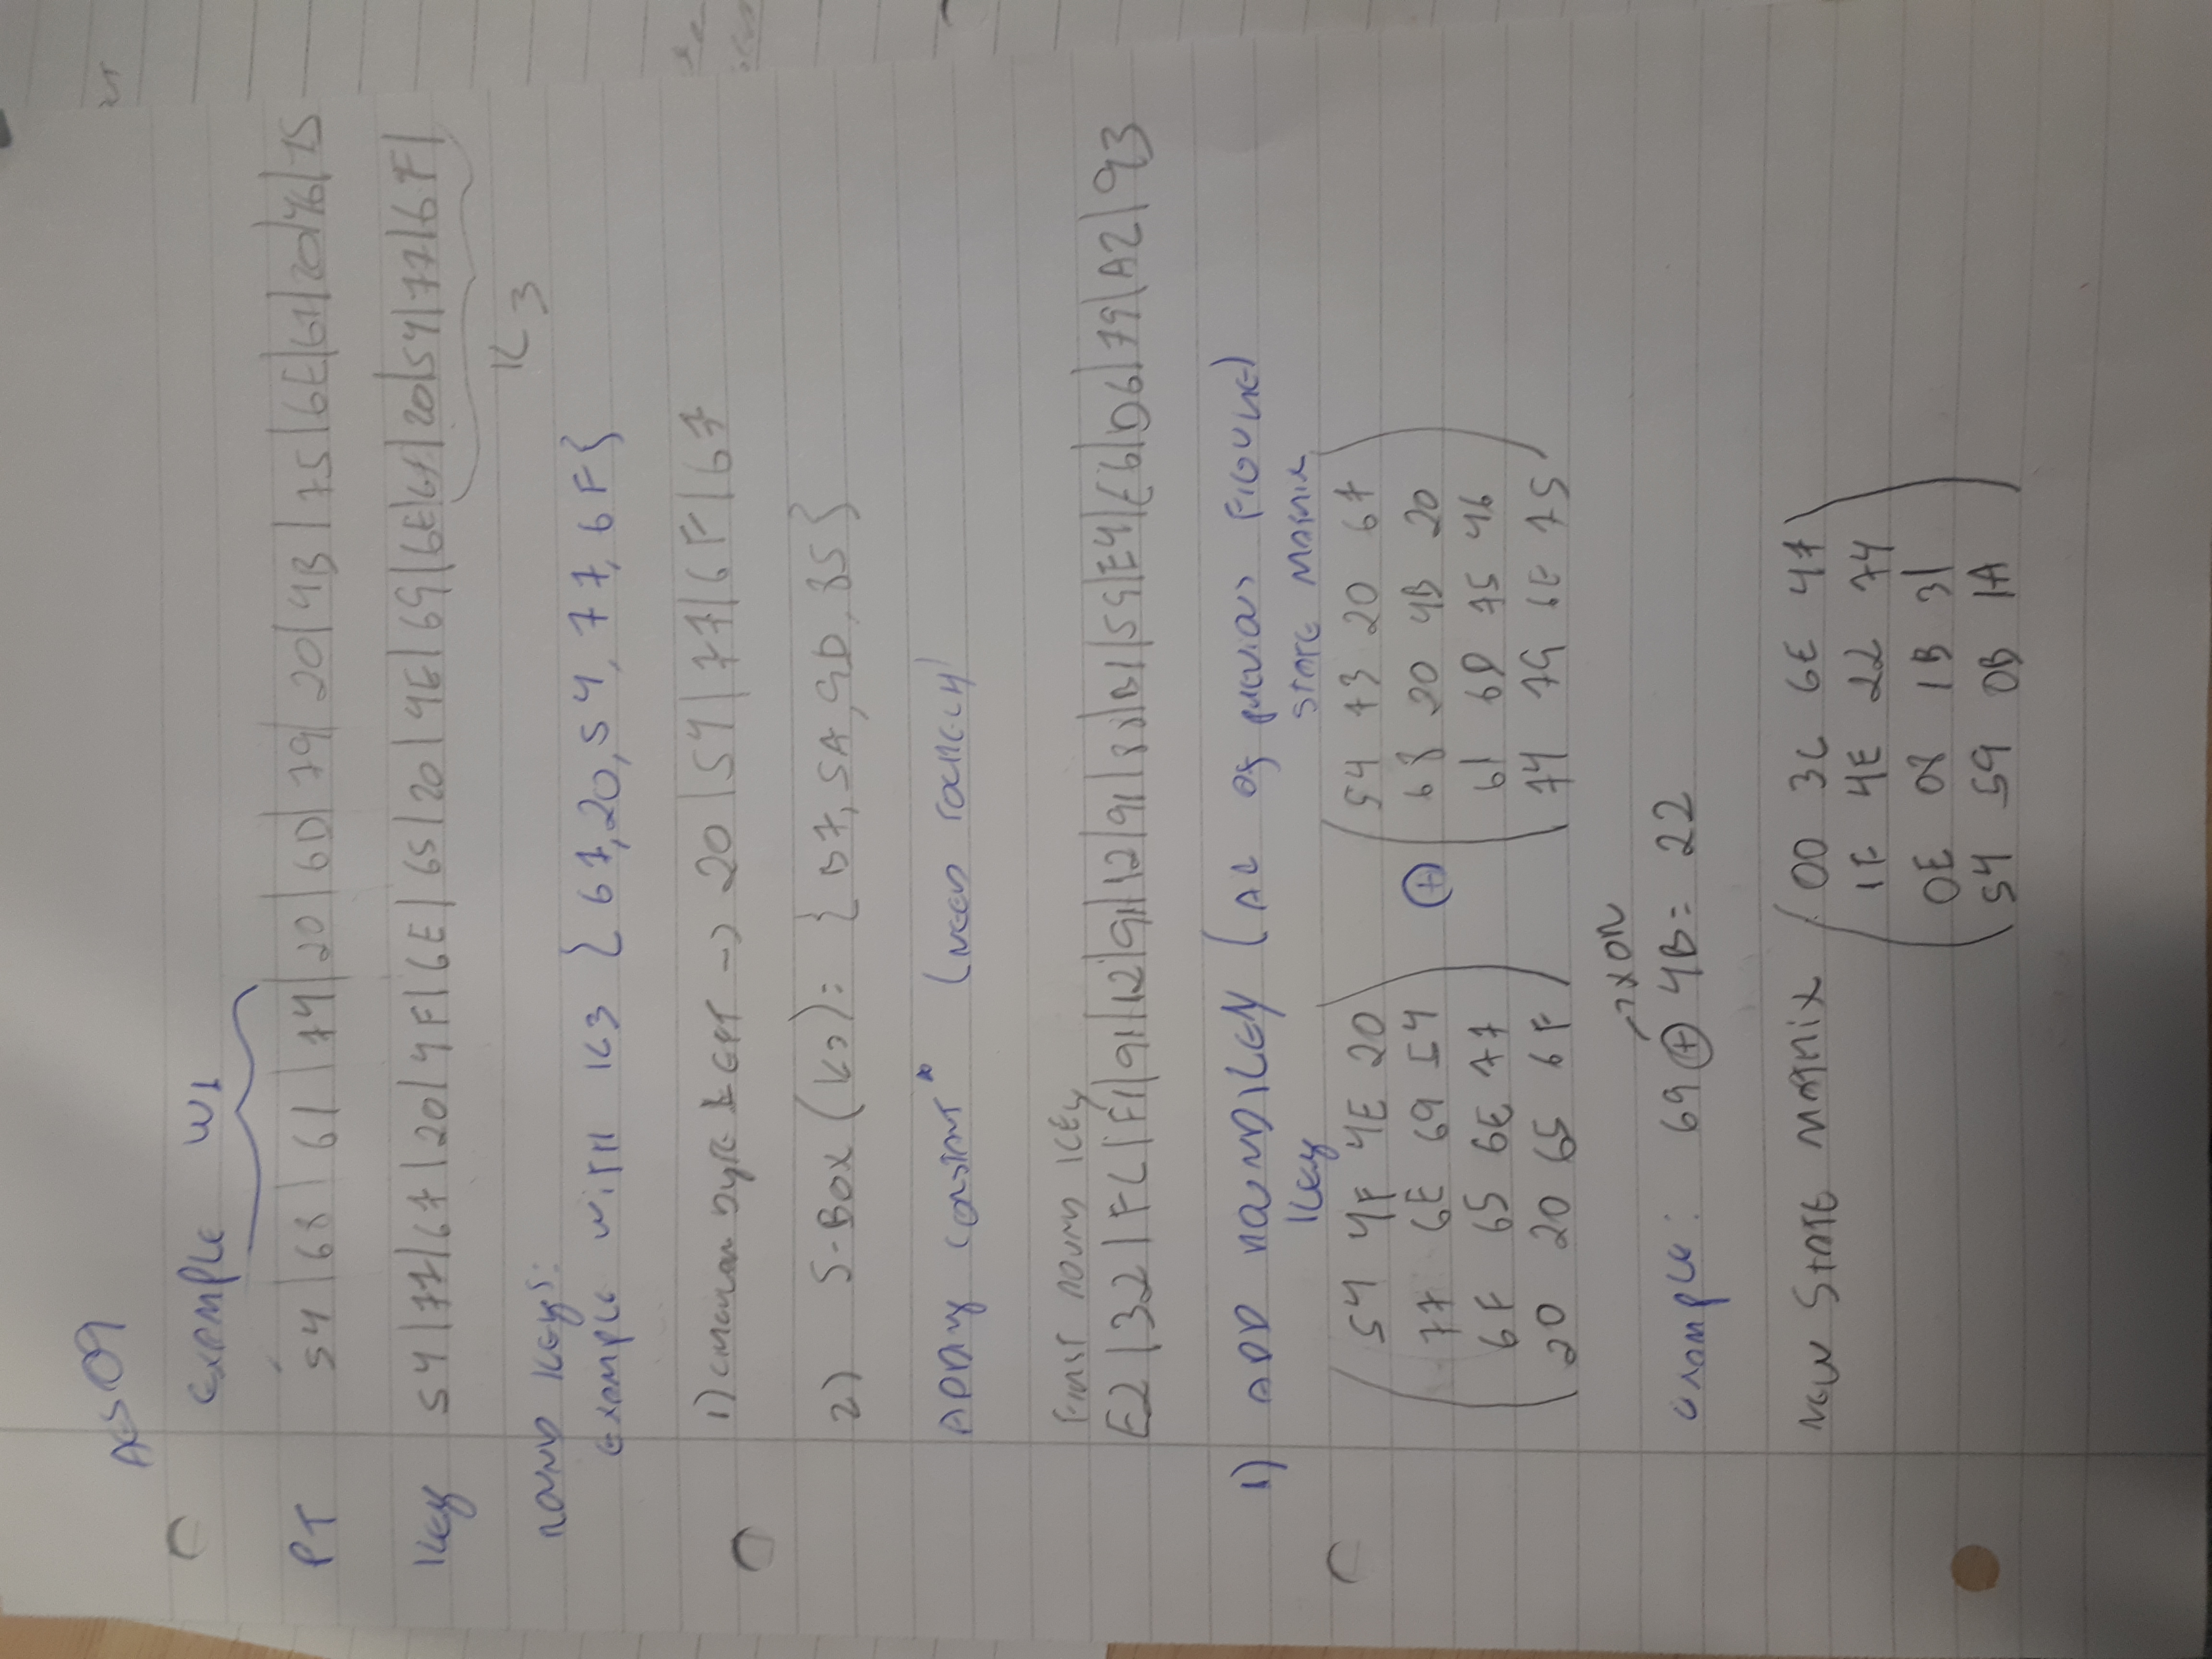 AES 09
Example W1
PT 54 | 68 | 61 | 74 | 20 | 6D | 79 | 20 | 4B | 75 | 6E | 67 | 20 | 46 | 75
Key 54 | 77 | 67 | 20 | 4F | 6E | 65 | 20 | 4E | 69 | 6E | 67 | 20 | 54 | 77 | 6F |
K3
Round Keys:
Example with K3 { 67, 20, 54, 77, 6F }
1) byte LEFT -> 20 | 54 | 77 | 6F | 67
2) S-Box (K3): { B7, 5A, 9D, 85 }
ADDing constant * (need
First round Key
E2 | 32 | FC | F1 | 91 | 12 | 91 | 12 | 91 | 88 | B1 | 59 | E4 | E6 | D6 | 79 | A2 | 93
1) ADD ROUNDKEY (AL of previous FIGURE)
Key State Matrix
54 4F 4E 20 54 73 20 67
77 6E 69 54 ⊕ 68 20 4B 20
6F 65 6E 77 61 6D 75 46
20 20 65 6F 74 79 6E 75
-> XOR
example: 69 ⊕ 4B = 22
New State Matrix 00 3C 6E 47
1F 4E 22 74
0E 08 1B 31
54 59 0B 1A